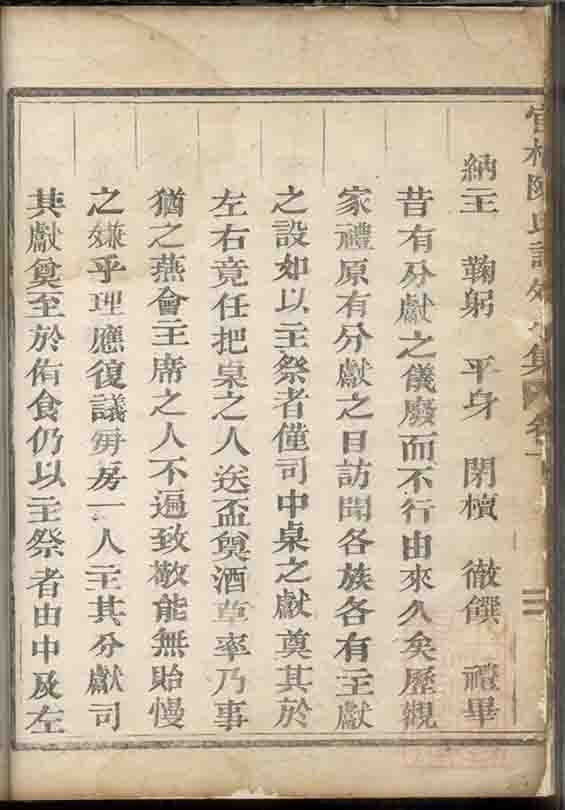 納主 鞠躬 平身 閉櫝 徹饌 禮畢
昔有分獻之儀廢而不行由來久矣歷觀
家禮原有分獻之目訪聞各族各有主獻
之設如以主祭者僅司中桌之獻奠其於
左右竟任把桌之人送盃奠酒草率乃事
猶之燕會主席之人不遍致敬能無貽慢
之嫌乎理應復議毎房一人主其分獻司
其獻奠至於侑食仍以主祭者由中及左